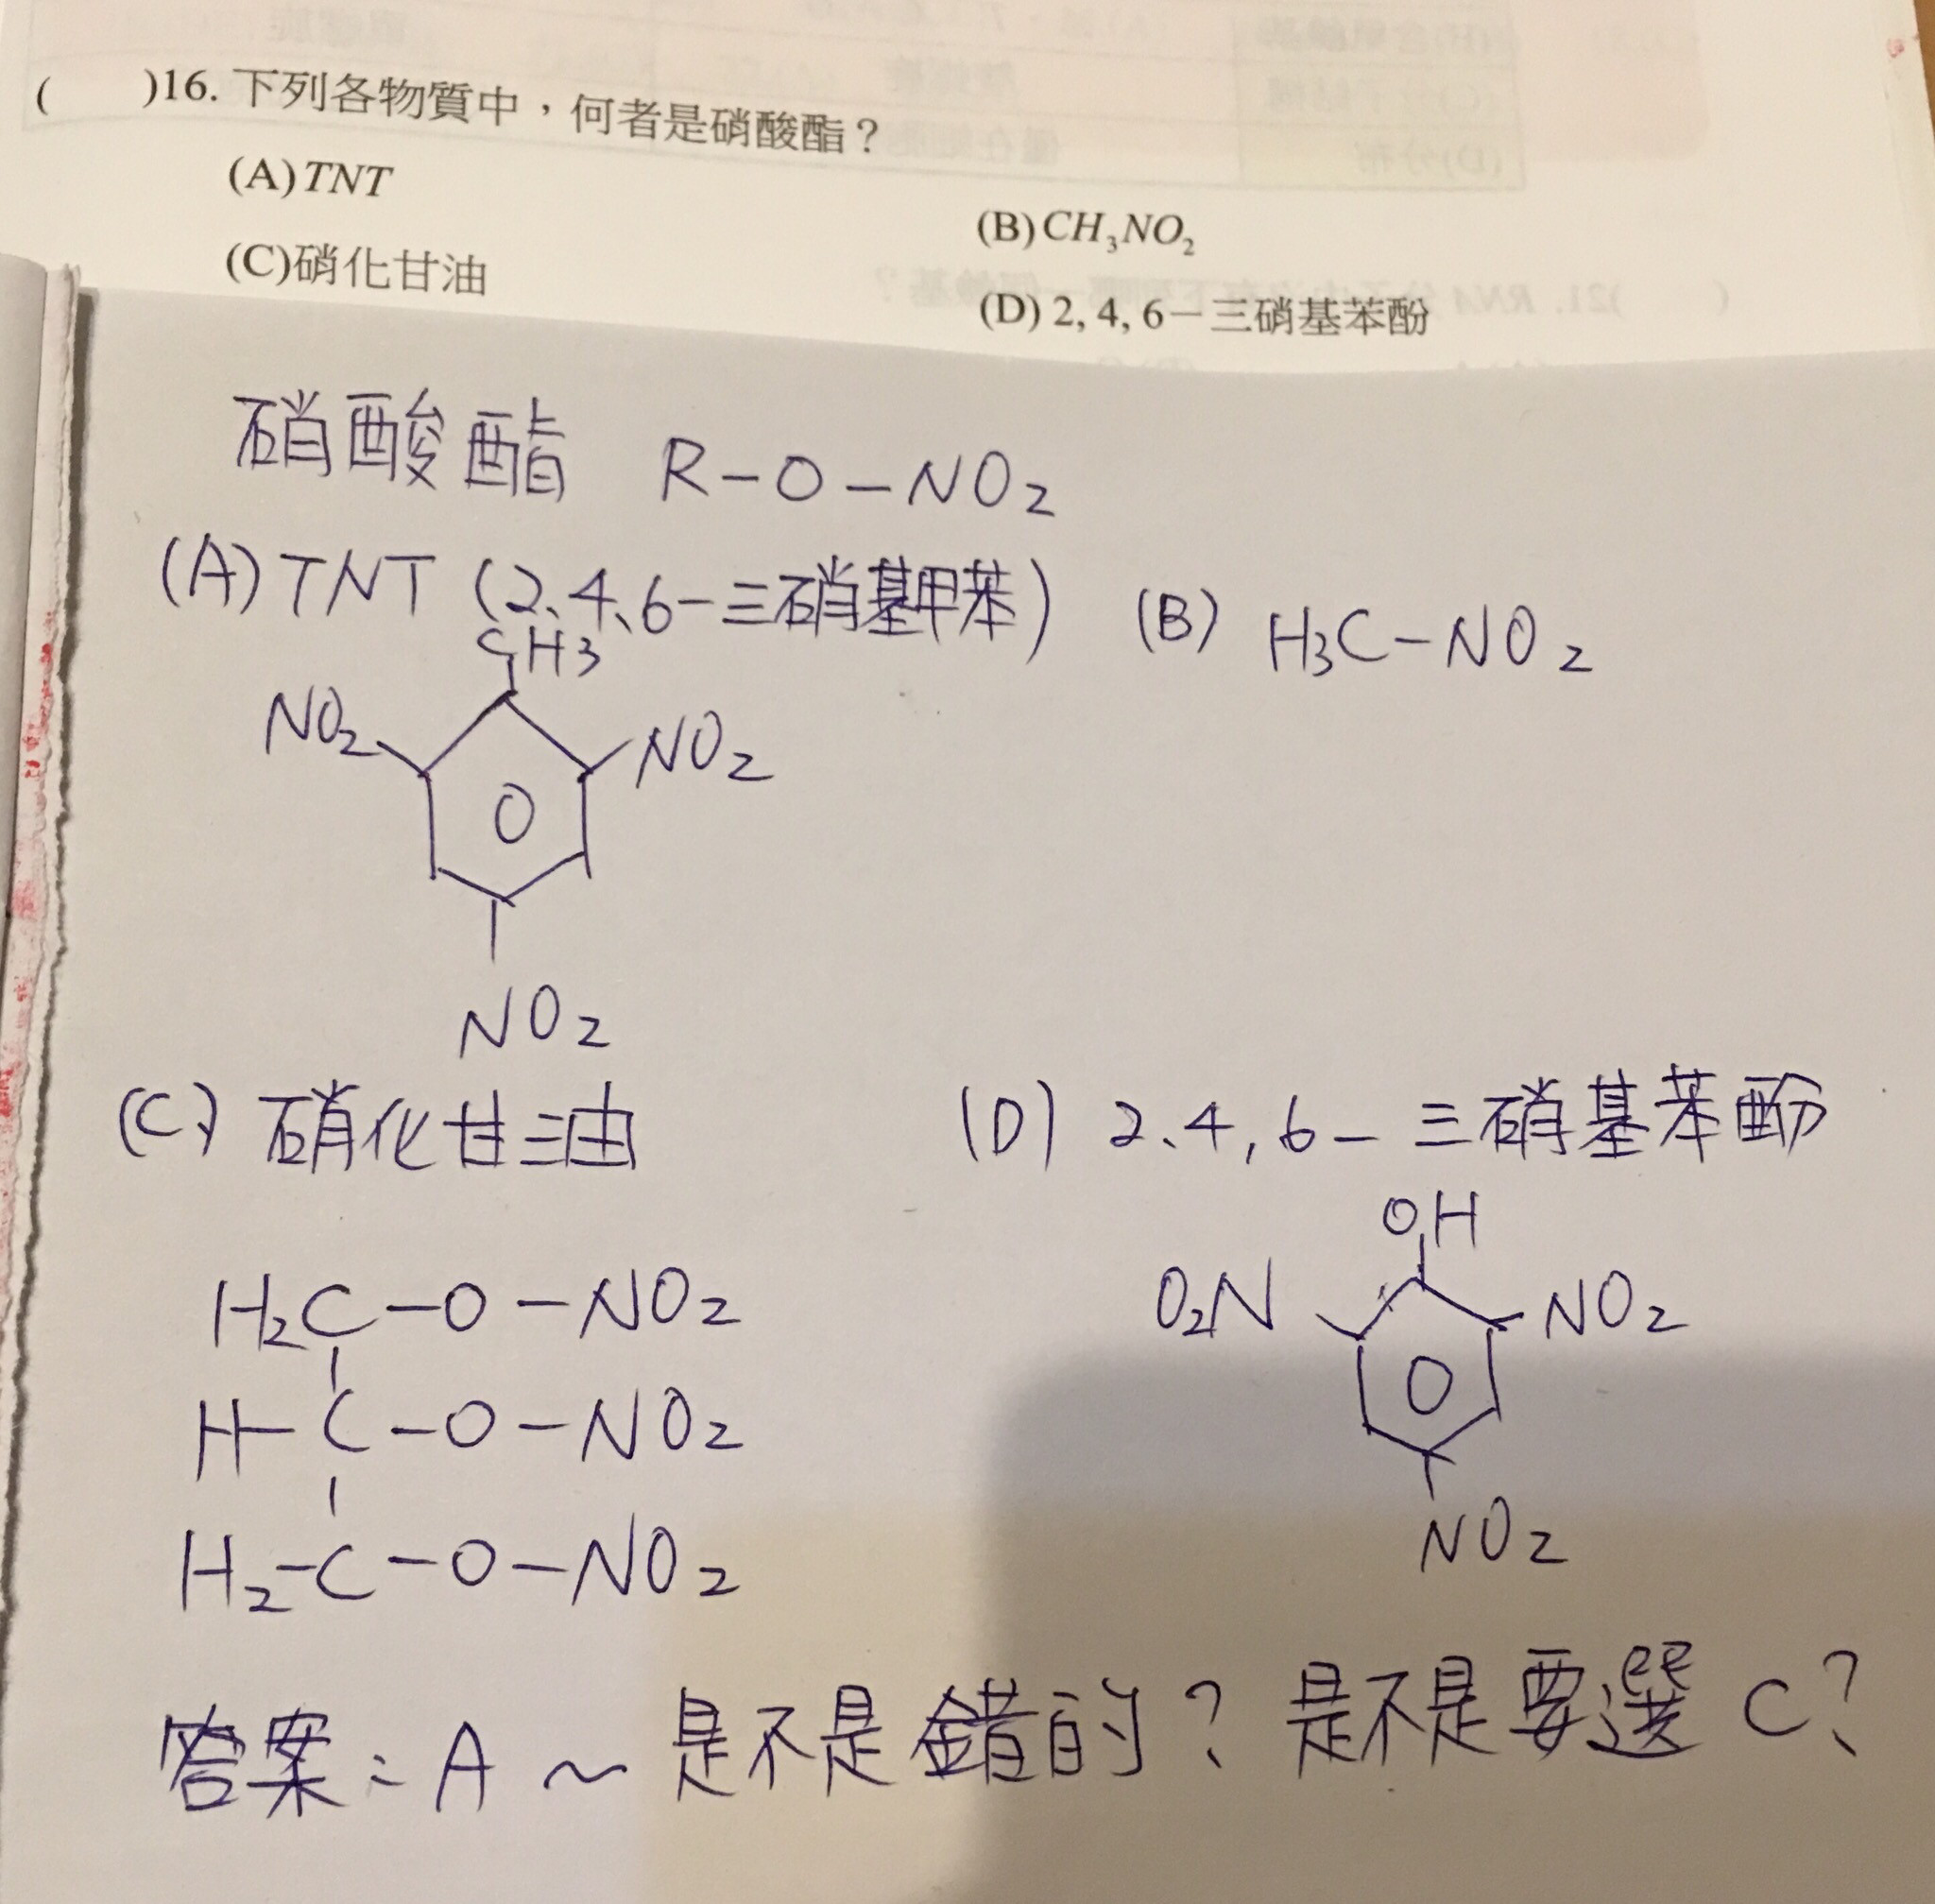 (    )16. 下列各物質中，何者是硝酸酯？
(A) TNT
(B) CH₃NO₂
(C)硝化甘油
(D) 2, 4, 6－三硝基苯酚
硝酸酯 R－O－NO₂
(A) TNT (2、4、6－三硝基甲苯)
(B) H₃C－NO₂
CH₃
NO₂ NO₂
NO₂
(C) 硝化甘油
(D) 2、4, 6－三硝基苯酚
H₂C－O－NO₂
H－C－O－NO₂
H₂－C－O－NO₂
OH
O₂N NO₂
NO₂
答案：A ～ 是不是錯的？是不是要選 C？